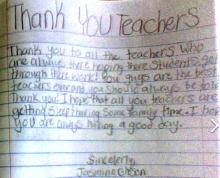 Thank You Teachers
Thank you to all the teachers who
are always there helping there Students go
through there work! You guys are the best
teachers ever and you should always be
Thank you! I hope that all you teachers are
getting sleep taking Some family time. I hope
you are always having a good day.
Sincelerly,
Jasmine